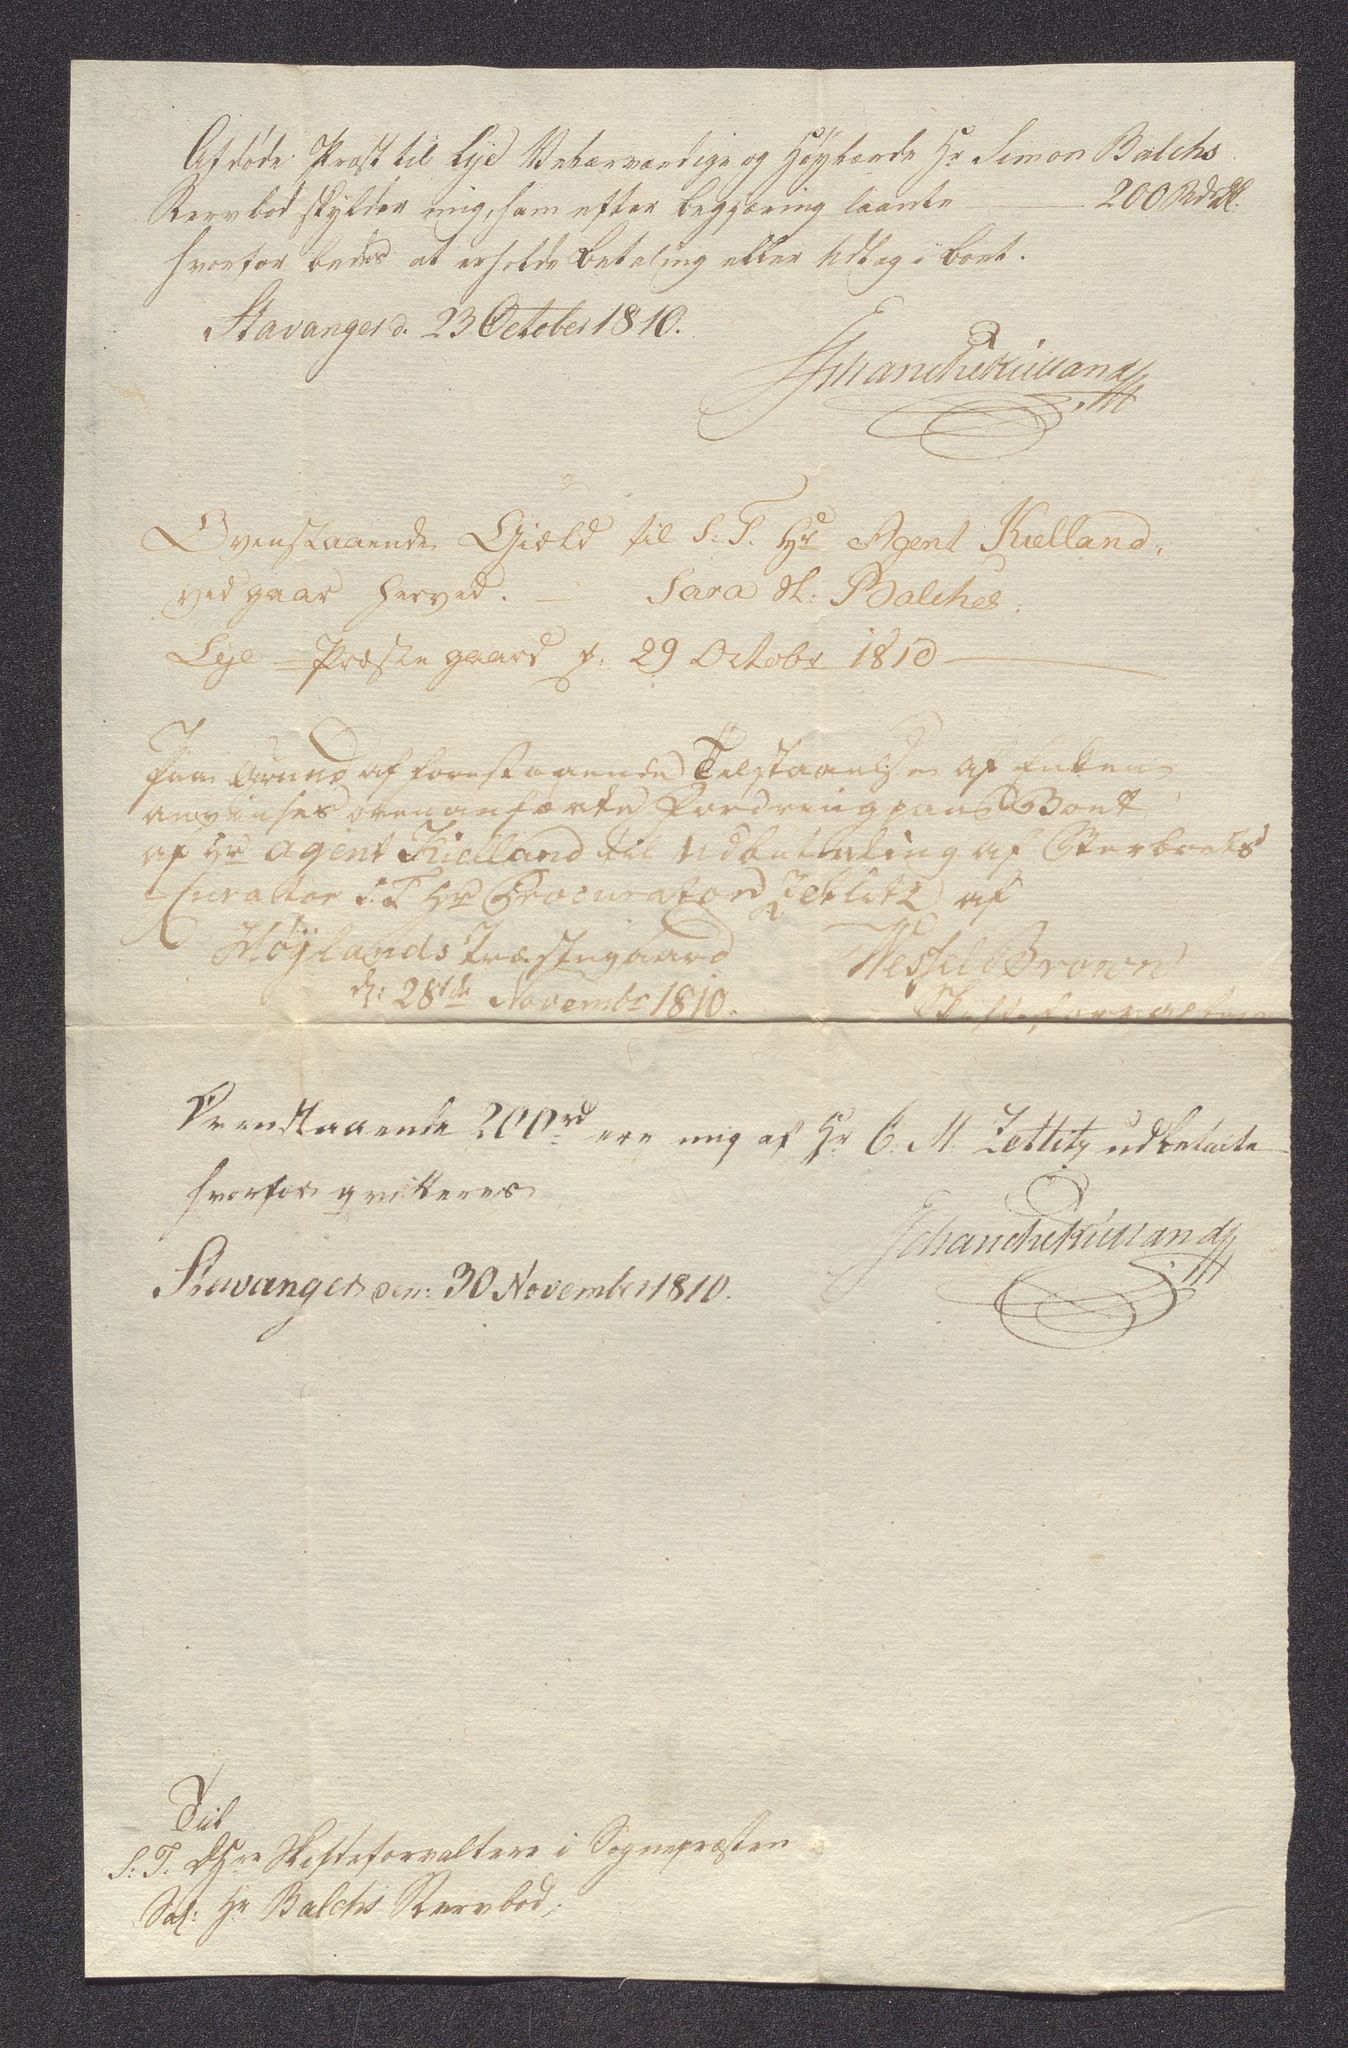 Afdøde Præst til Lye Velærværdige og Høylærde Hr Simon Balchs
Stervbod skylder mig, ham efter begjæring laante — 200 Rdlr.
hvorfor bedes at erholde betaling eller Udlæg i boet.
Stavanger d. 23 October 1810.
GSchancheKielland
Ovenstaaende Giæld til S: T. Hr Agent Kielland,
vedgaar herved. — Sara Balches.
Lye — Præstegaard d. 29 Octobr 1810 —
Paa Grund af forestaaende Tilstaaelse af Enken
anviises ovenanførte Fordring paa Boet
af Hr Agent Kielland til Udbetaling af Sterboets
Curator S. T Hr Procurator Zetlitz af
Höÿlands Præstegaard Wessel Brown
d: 28de Novembr 1810. Skifteforvalter
Ovenstaaende 200rd ere mig af Hr C. M. Zetlitz udbetalte
hvorfor qvitteres
GSchancheKielland
Stavanger den: 30 November 1810.
Til
S: T. DHrr Skifteforvaltere i Sognepræsten
Sal: Hr Balchs Stervbod,